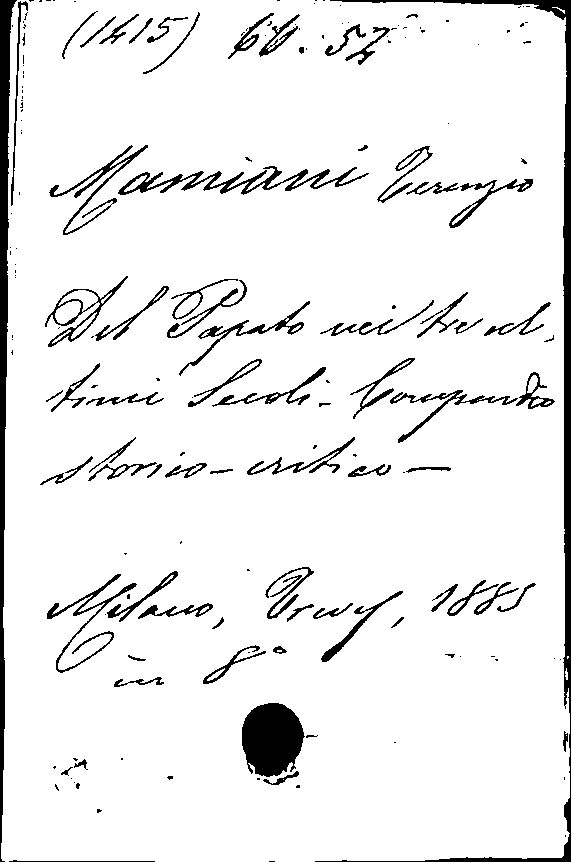 (1415) 66. 52
Mamiani Terenzio
Del Papato nei tre ul,
timi Secoli - Compendio
storico - critico -
Milano, Treves, 1885
in 8°